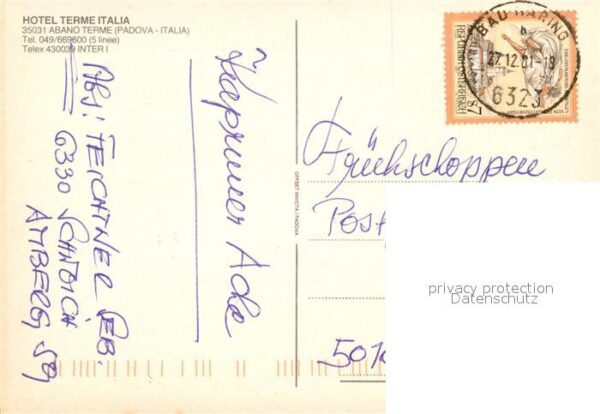 HOTEL TERME ITALIA
35031 ABANO TERME (PADOVA - ITALIA)
Tel. 049/669600 (5 linee)
Telex 430039 INTER I
BAD HÄRING
b
27.12.01-19
6323
REPUBLIK ÖSTERREICH
S7
Frühschoppen
Post
501
OFFSET INVICTA / PADOVA
Kapruner Ache
Abs: FEICHTNER SEB.
6330 SCHWOICH
AMBERG 59
privacy protection
Datenschutz